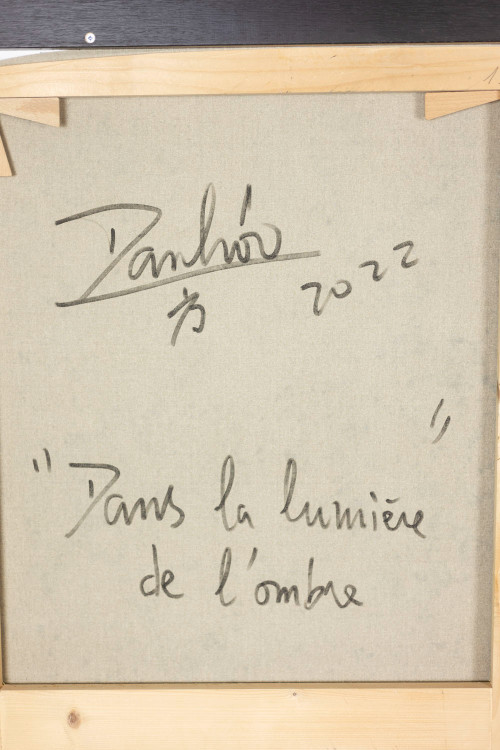 Danhôo
2022
"Dans la lumière"
de l'ombre